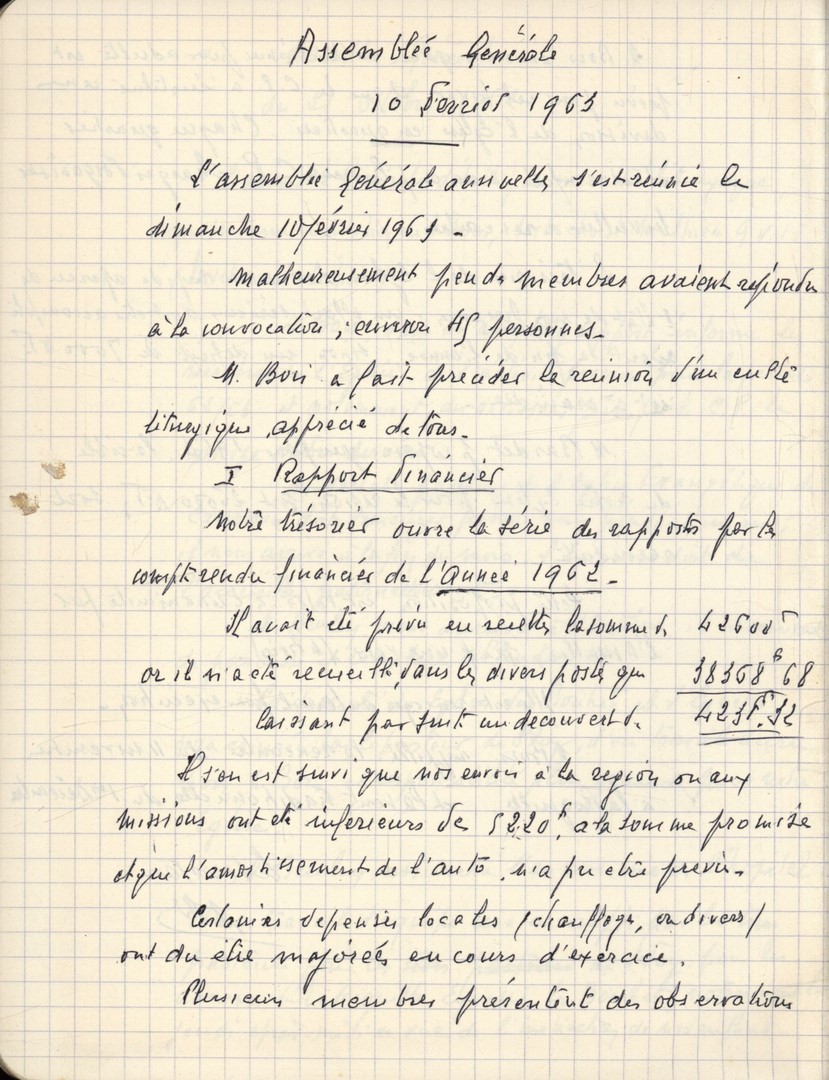 Assemblée Générale
10 Février 1963
L'assemblée Générale annuelle s'est réunie le
dimanche 10 février 1963 -
Malheureusement peu de membres avaient répondu
à la convocation ; environ 45 personnes -
M. Bois a fait précéder la réunion d'un culte
liturgique, apprécié de tous -
I Rapport Financier
Notre trésorier ouvre la série des rapports par le
compte rendu financier de l'Année 1962 -
Il avait été prévu en recettes la somme de 42600F
or il n'a été recueilli, dans les divers postes que 38368F68
laissant par suite un découvert de 4231F.32
Il s'en est suivi que nos envois à la région ou aux
missions ont été inférieurs de 5220F, à la somme promise
et que l'amortissement de l'auto, n'a pu être prévu -
Certaines dépenses locales (chauffage, ou divers)
ont du être majorées en cours d'exercice.
Plusieurs membres présentent des observations